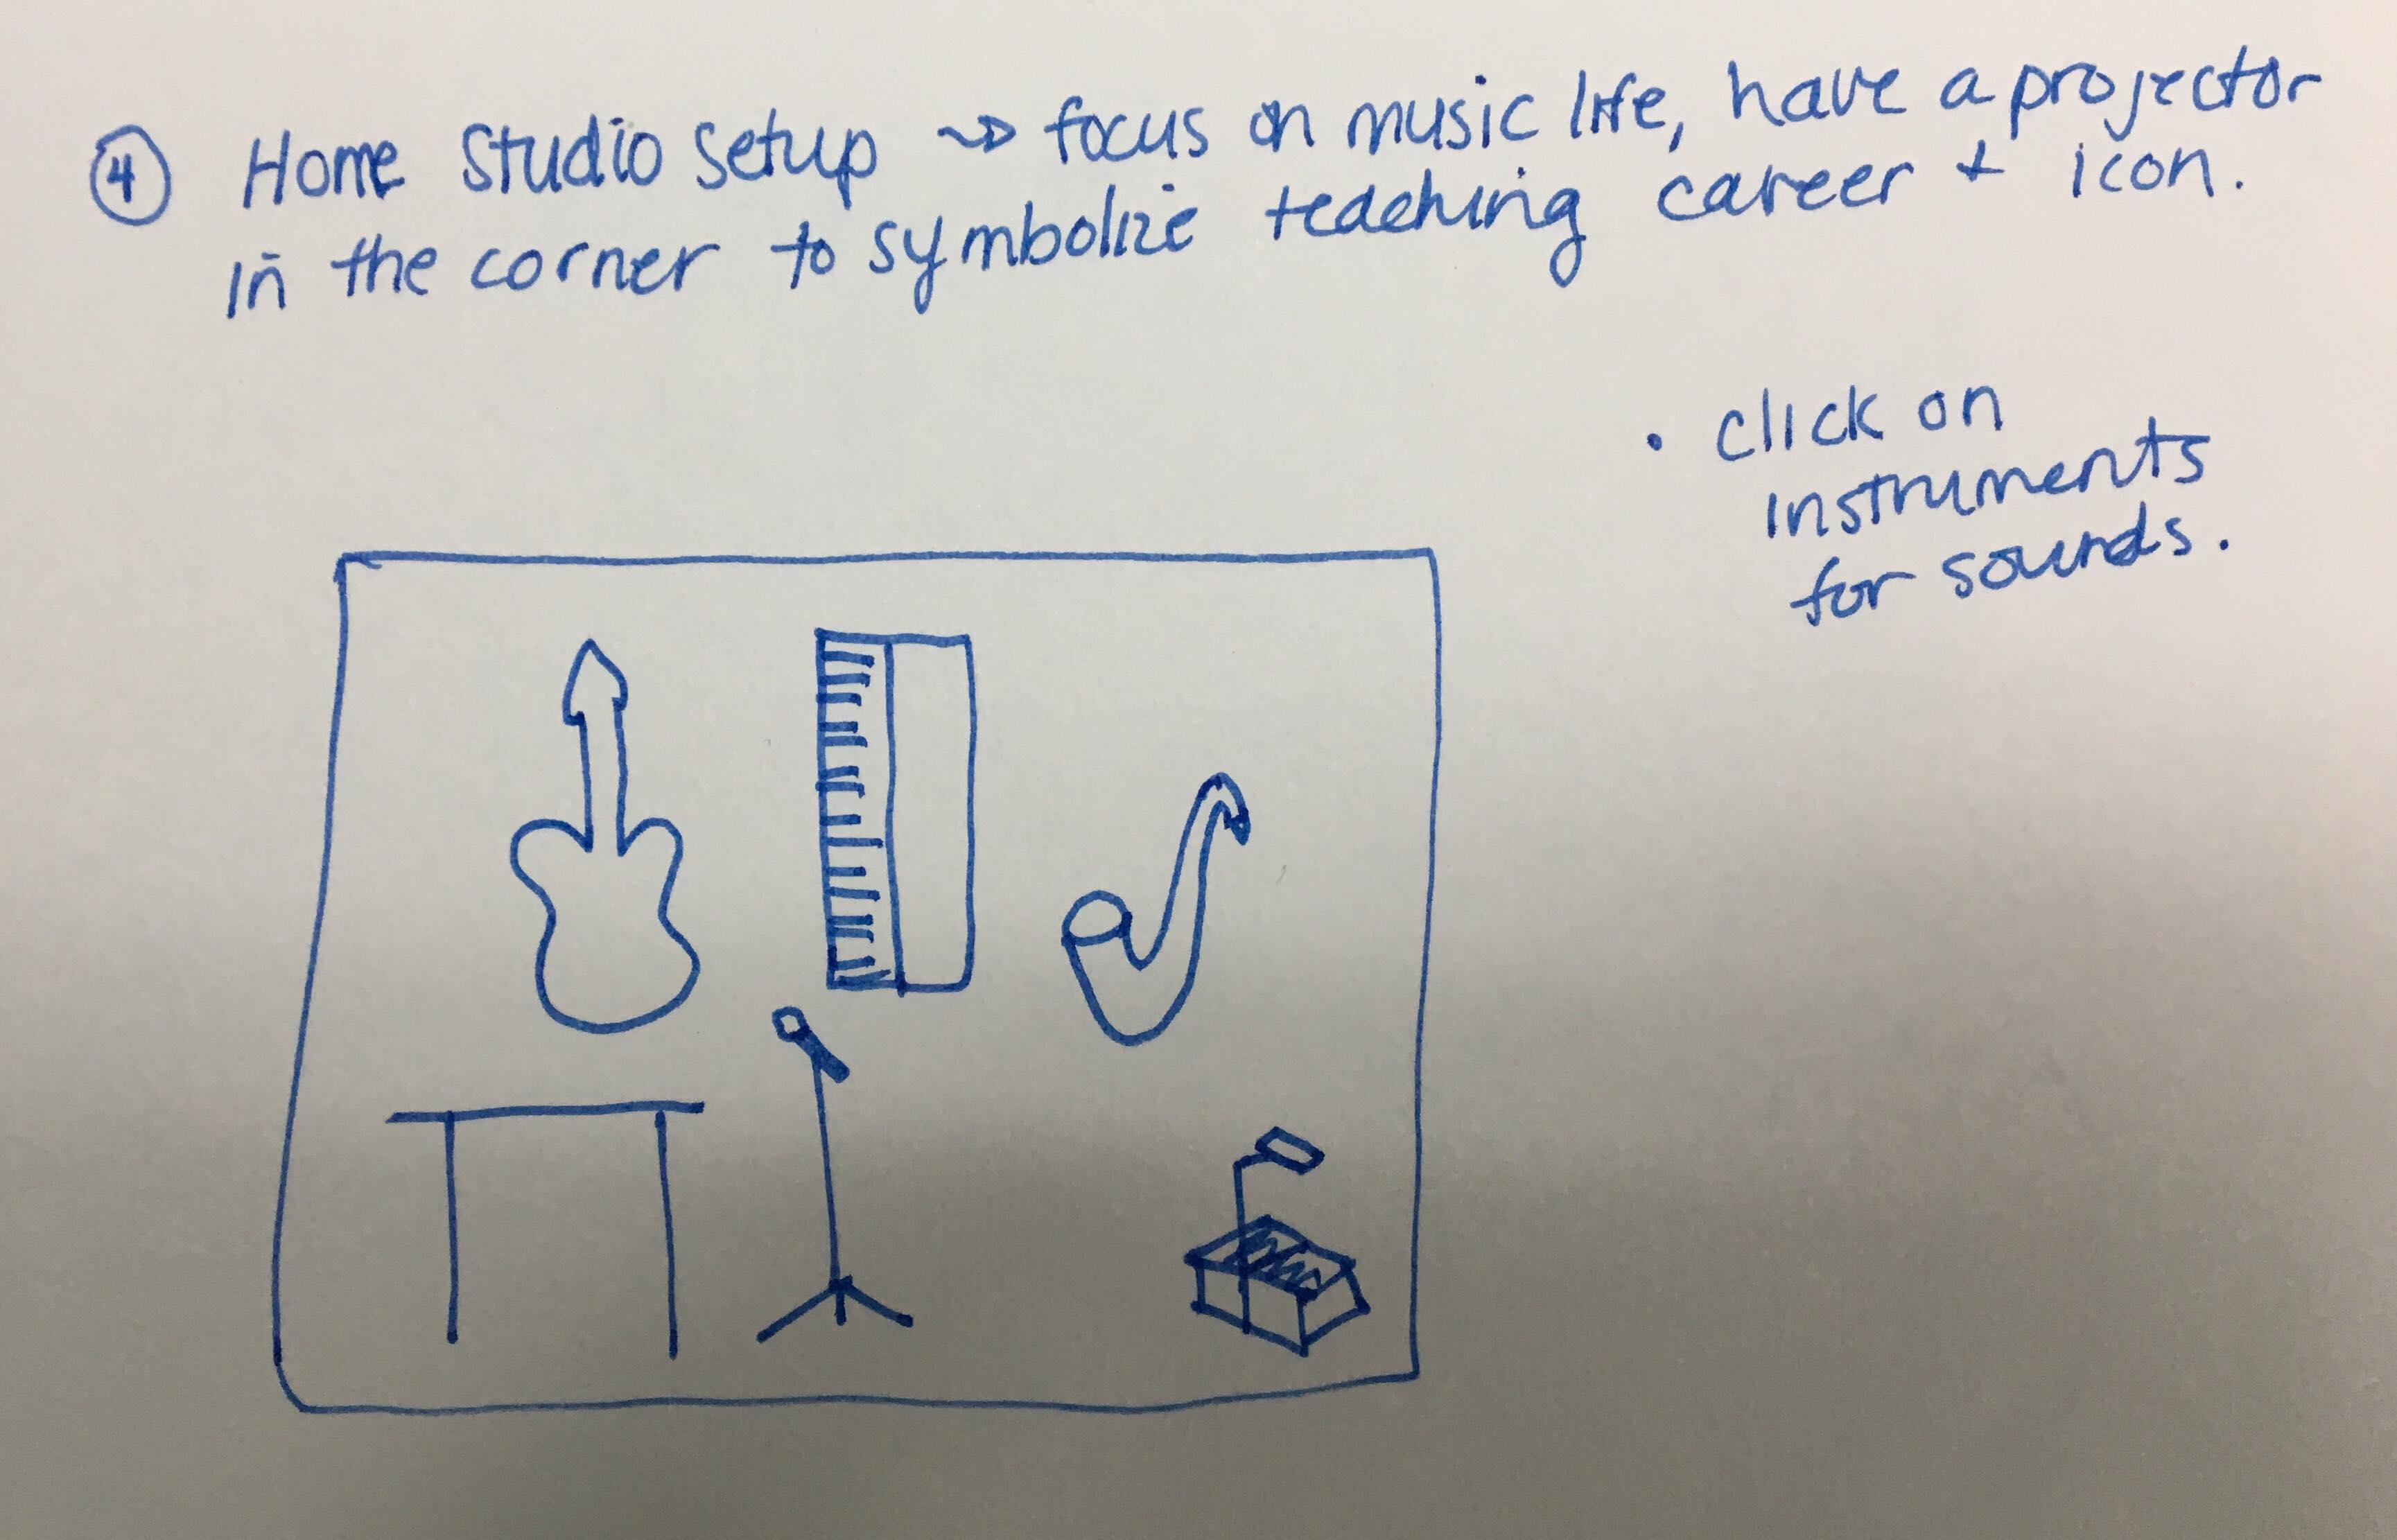 ④ Home Studio Setup → focus on music life, have a projector
in the corner to symbolize teaching career + icon.
• click on
instruments
for sounds.